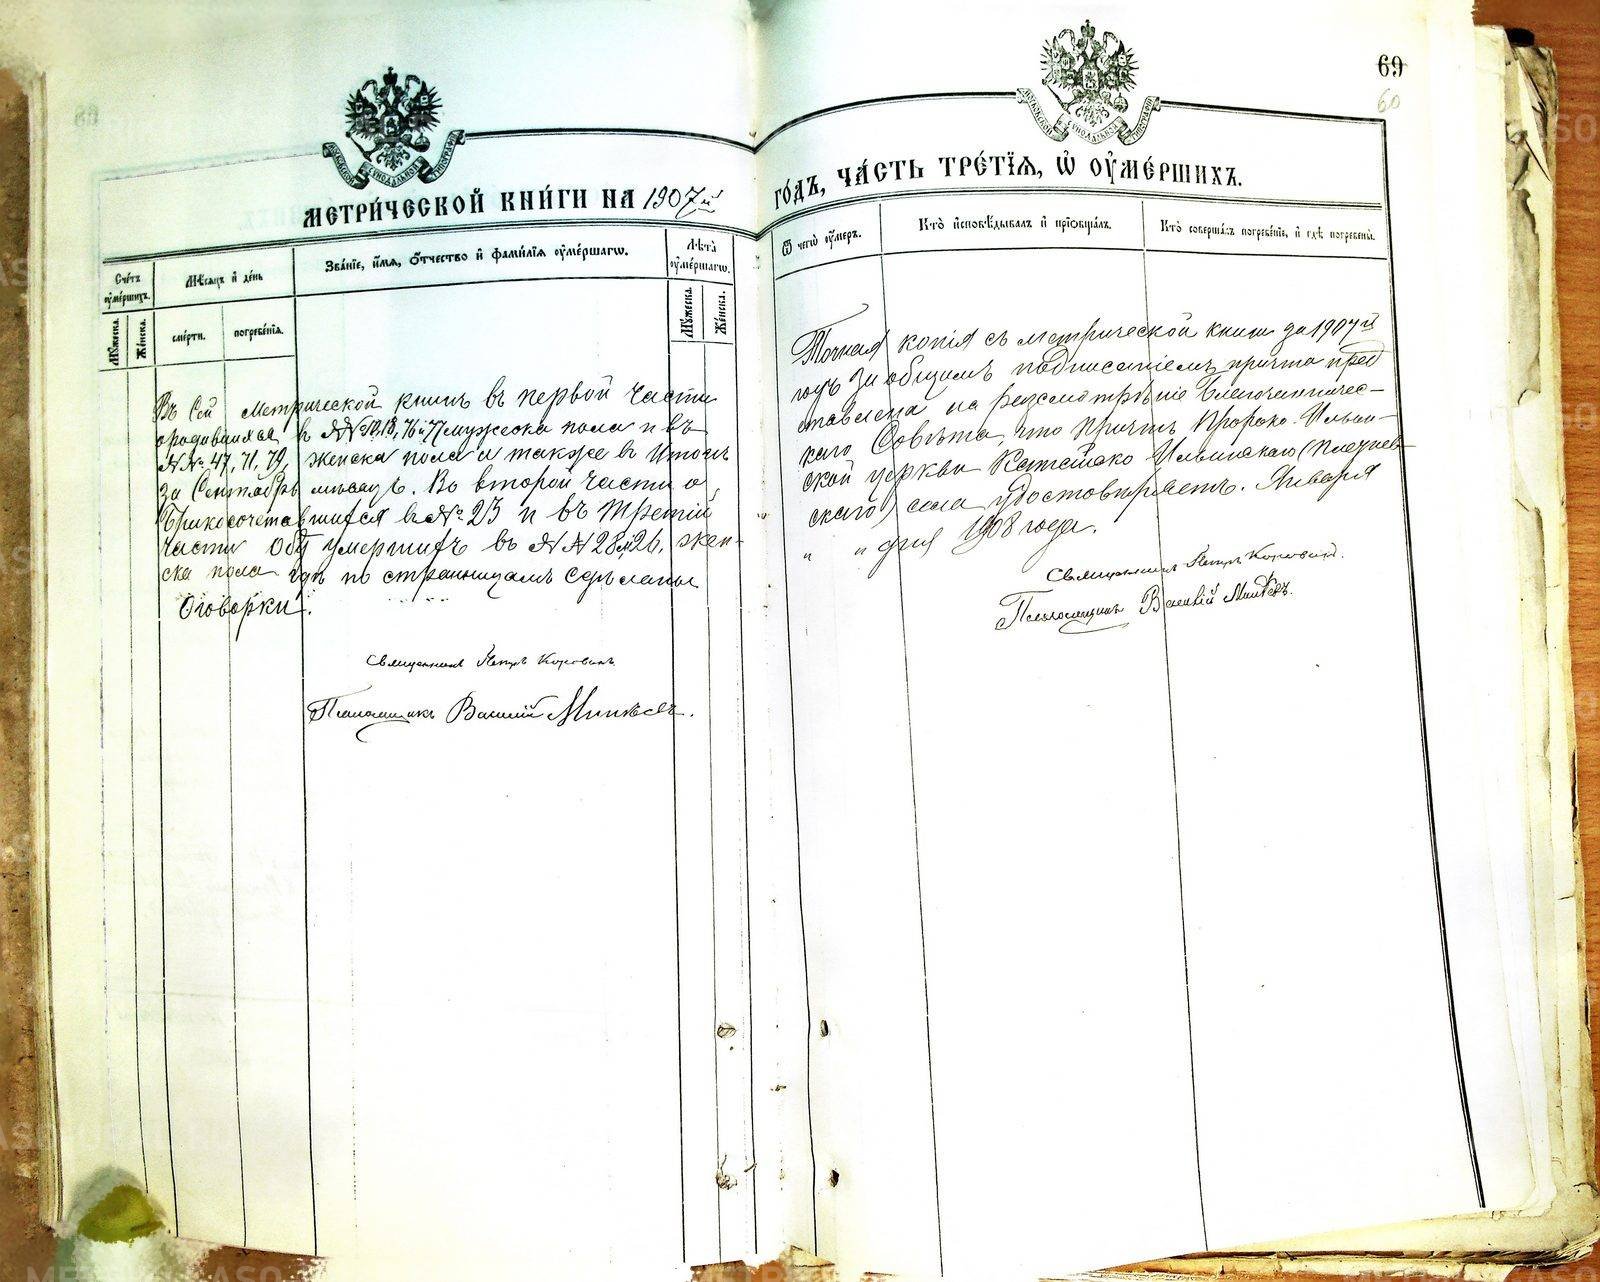 69
60
МЕТРИ́ЧЕСКОЙ КНИ́ГИ НА 1907й
ГО́ДЪ, ЧА́СТЬ ТРЕ́ТІѦ, Ѡ ОУМЕ́РШИХЪ.
Сче́тъ оуме́ршихъ.
Мѣсѧцъ и де́нь
Зва́нїе, и́мѧ, О́тчество и фами́лїѧ оуме́ршагѡ.
Лѣта̀ оуме́ршагѡ.
Мꙋжеска.
Же́нска.
сме́рти.
погребе́нїѧ.
Мꙋжеска.
Же́нска.
Ѿ чегѡ̀ оу́меръ.
Кто̀ и́сповѣ́дывалъ и прїѡбща́лъ.
Кто̀ соверша́лъ погребе́нїе, и гдѣ̀ погребены̀.
Въ сей метрической книгѣ въ первой части
о родившихся въ №№ 76 и 77 мужеска пола и въ
№№ 47, 71, 79, женска пола а также въ итогѣ
за Сентябрь мѣсяцъ. Во второй части о
бракосочетавшихся въ № 23 и въ третьей
части объ умершихъ въ №№ 28 и 26, жен-
ска пола гдѣ по страницамъ сдѣланы
оговорки.
Священникъ Петръ Коровинъ
Псаломщикъ Василій
Точная копія съ метрической книги за 1907й
годъ за общимъ подписаніемъ причта пред
ставлена на разсмотрѣніе Благочинничес-
каго Совѣта, что причтъ Пророко-Ильин-
ской церкви Ильинскаго
скаго) села удостовѣряетъ. Января
" " дня 1908 года.
Священникъ Петръ Коровинъ.
Псаломщикъ Василій